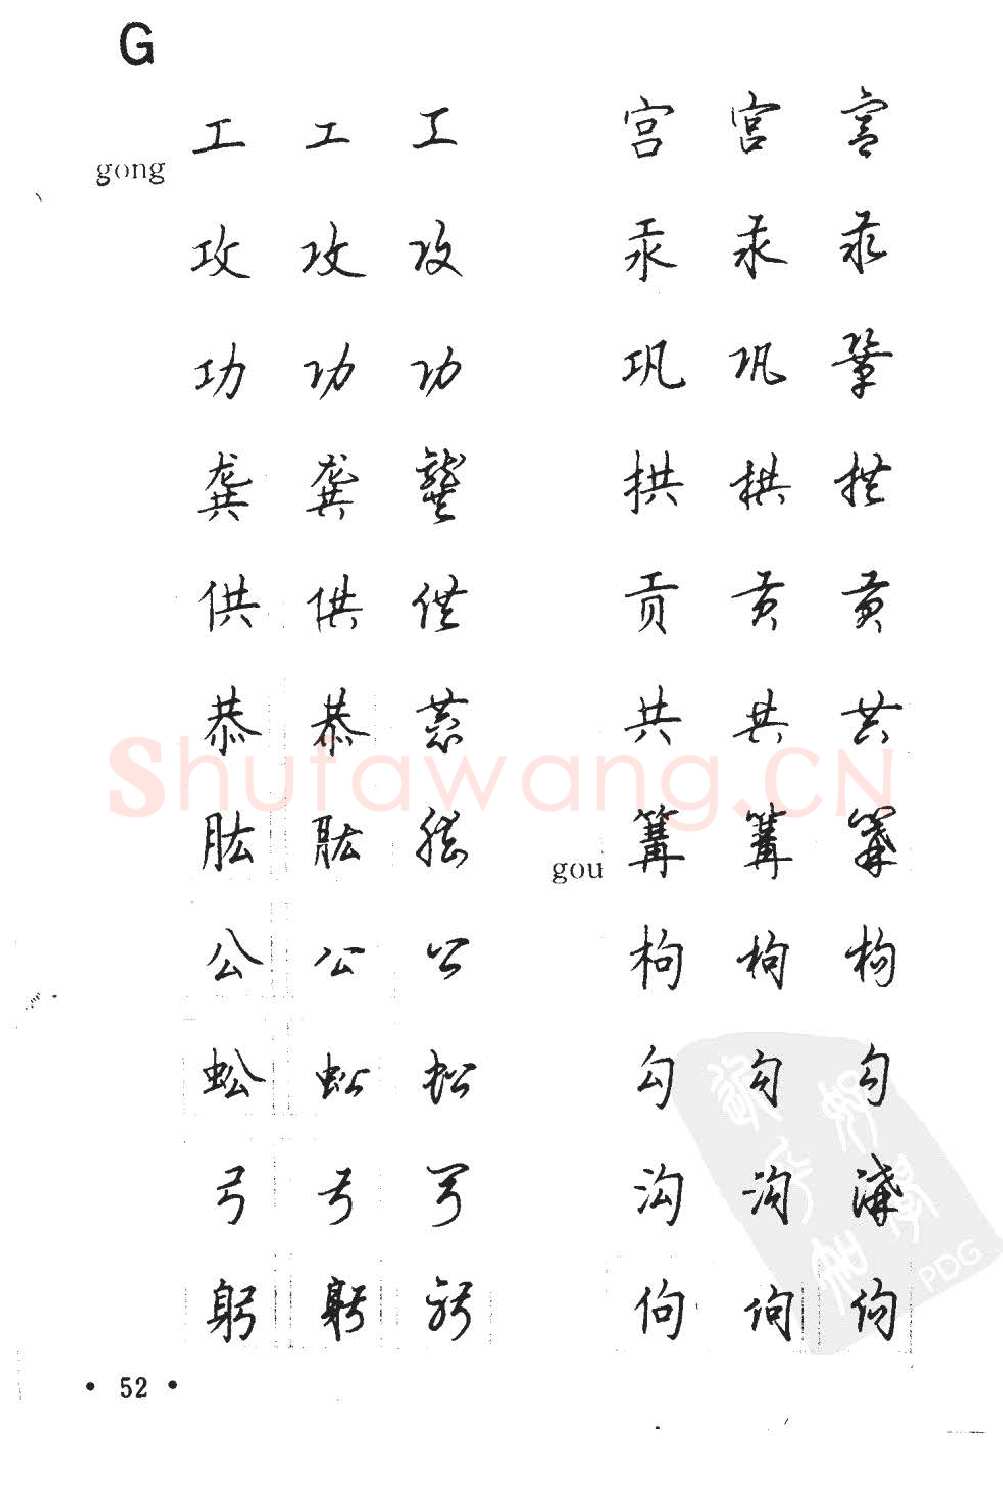 G
gong 工 工 工
攻 攻 攻
功 功 功
龚 龚 龔
供 供 供
恭 恭 恭
肱 肱 肱
公 公 公
蚣 蚣 蚣
弓 弓 弓
躬 躬 躬
宫 宫 宫
汞 汞 汞
巩 巩 鞏
拱 拱 拱
贡 贡 贡
共 共 共
gou 篝 篝 篝
枸 枸 枸
勾 勾 勾
沟 沟 溝
佝 佝 佝
• 52 •
Shufawang.CN
PDG